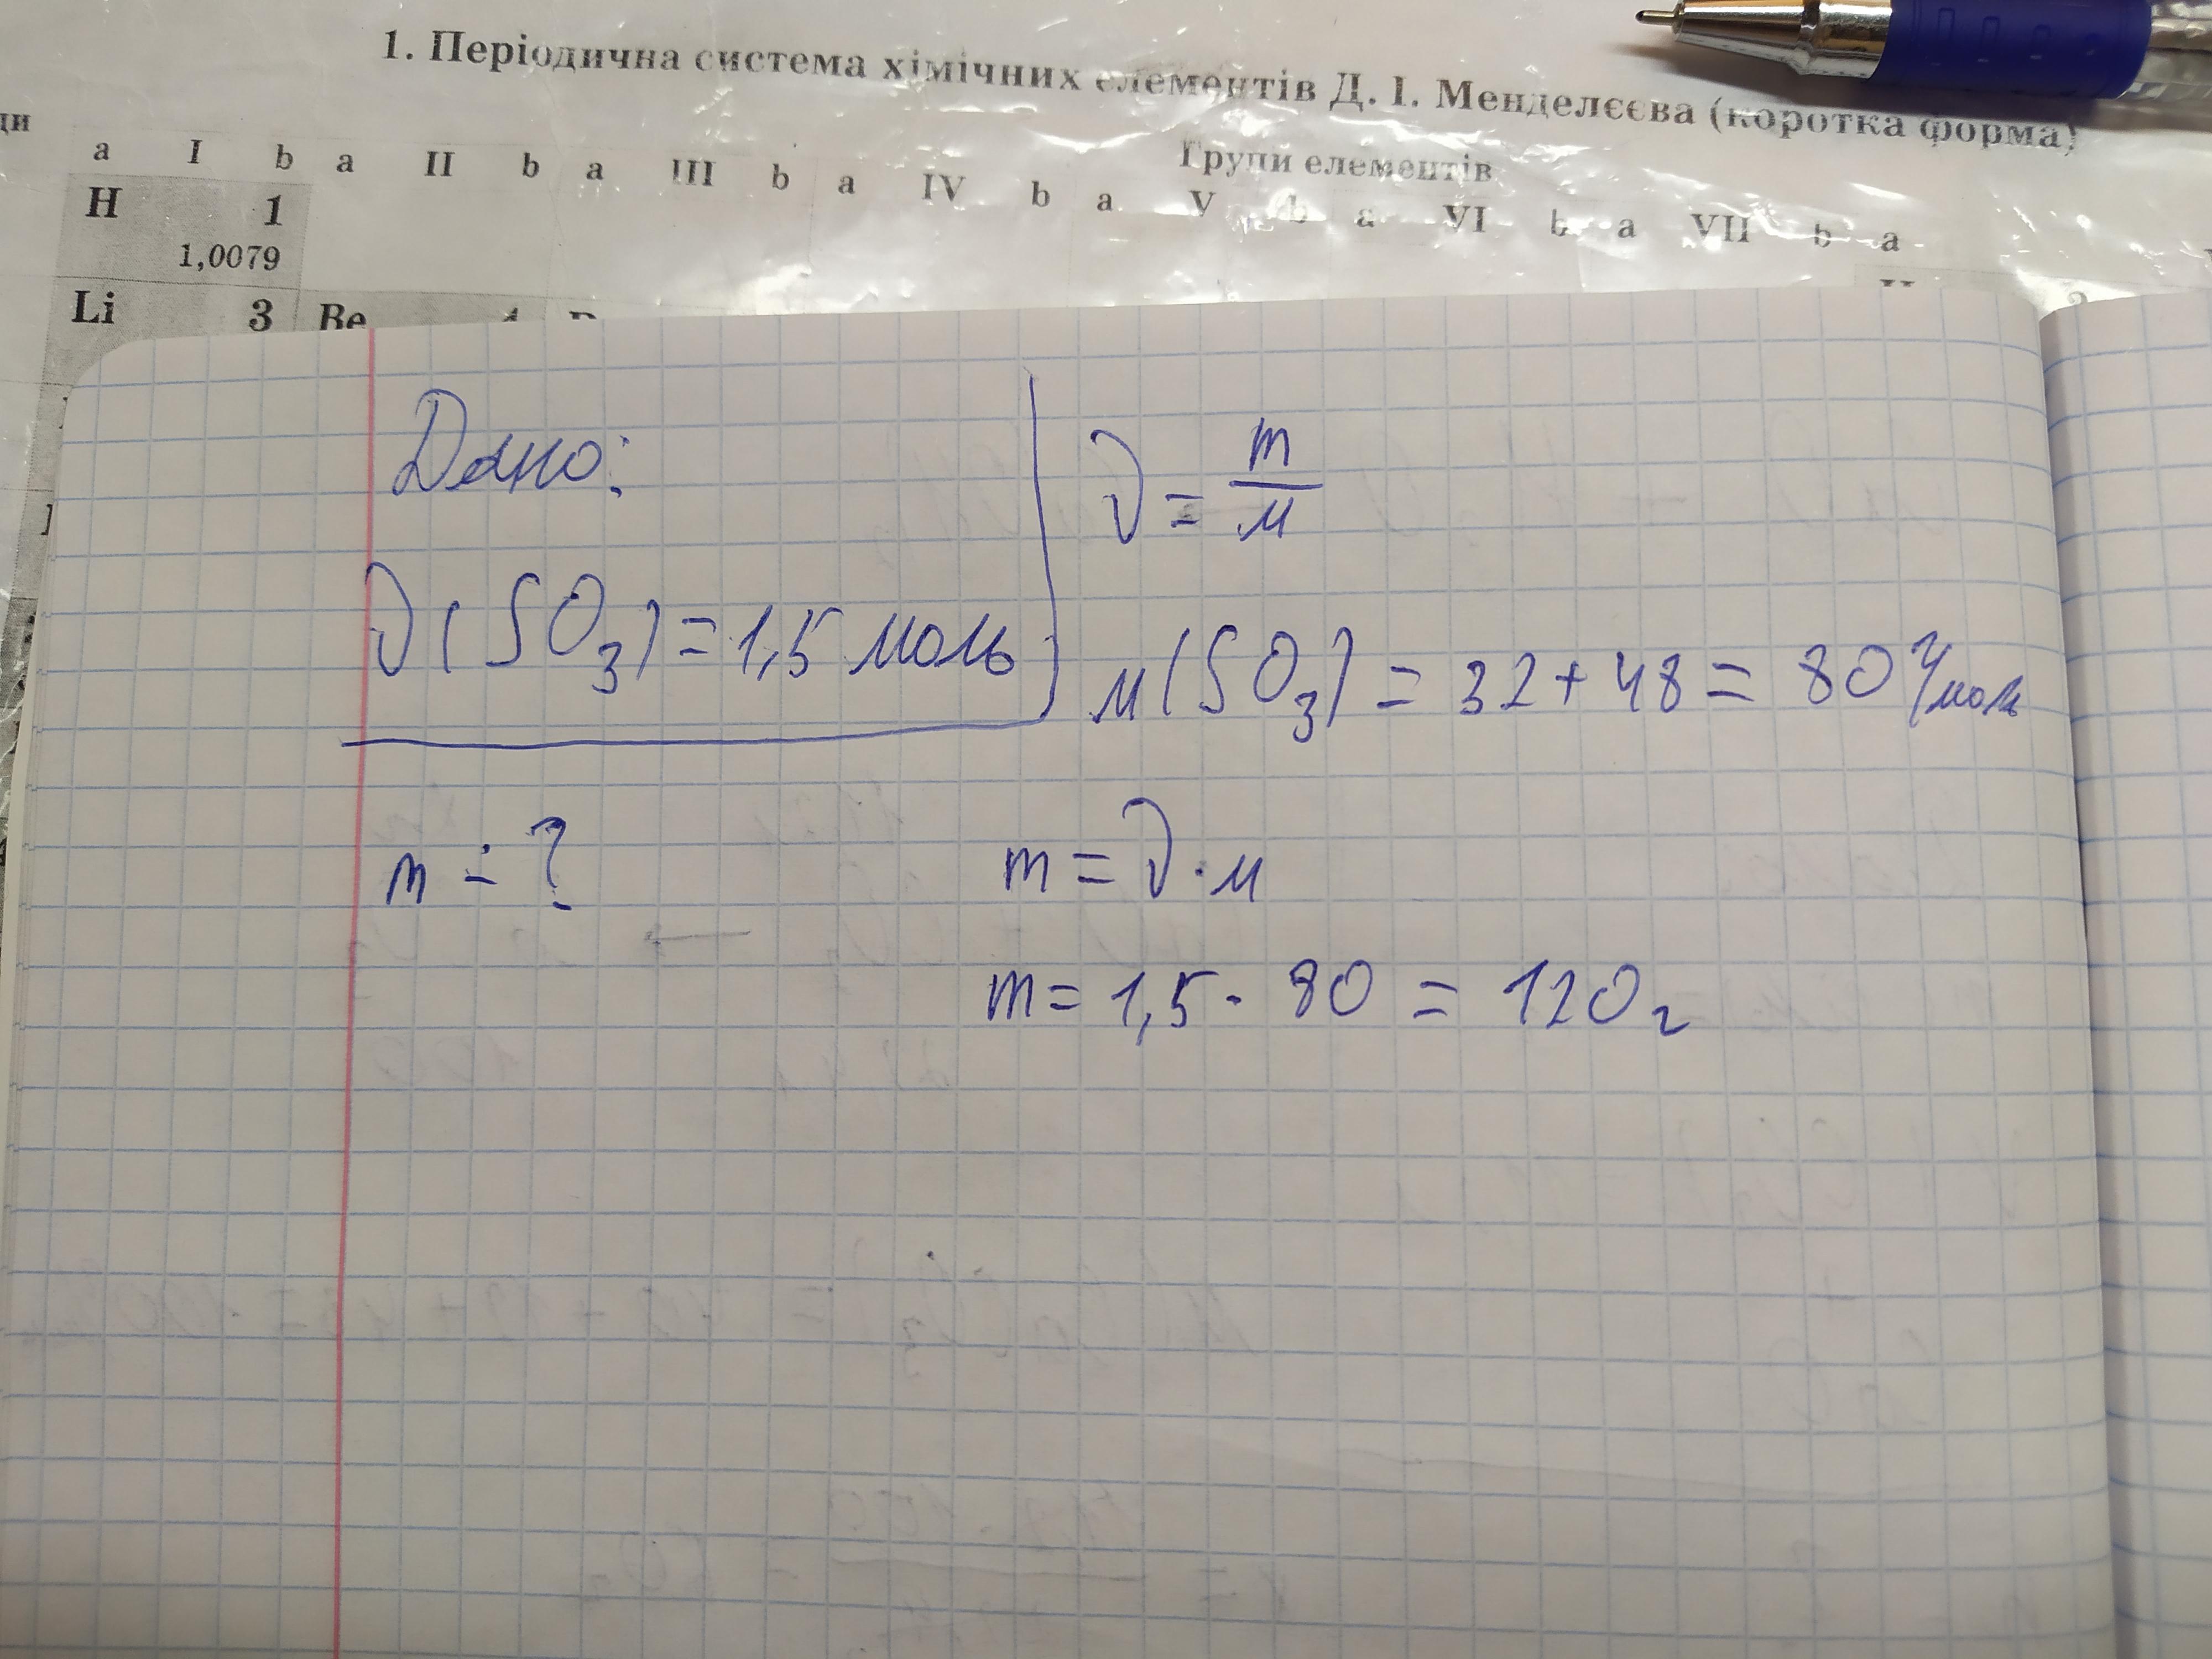 1. Періодична система хімічних елементів Д. І. Менделєєва (коротка форма)
Групи елементів
a I b a II b a III b a IV b a V b a VI b a VII b a
H 1
1,0079
Li 3 Be
Дано:
ν(SO₃) = 1,5 моль
m = ?
ν = m/м
м(SO₃) = 32 + 48 = 80 г/моль
m = ν · м
m = 1,5 · 80 = 120 г